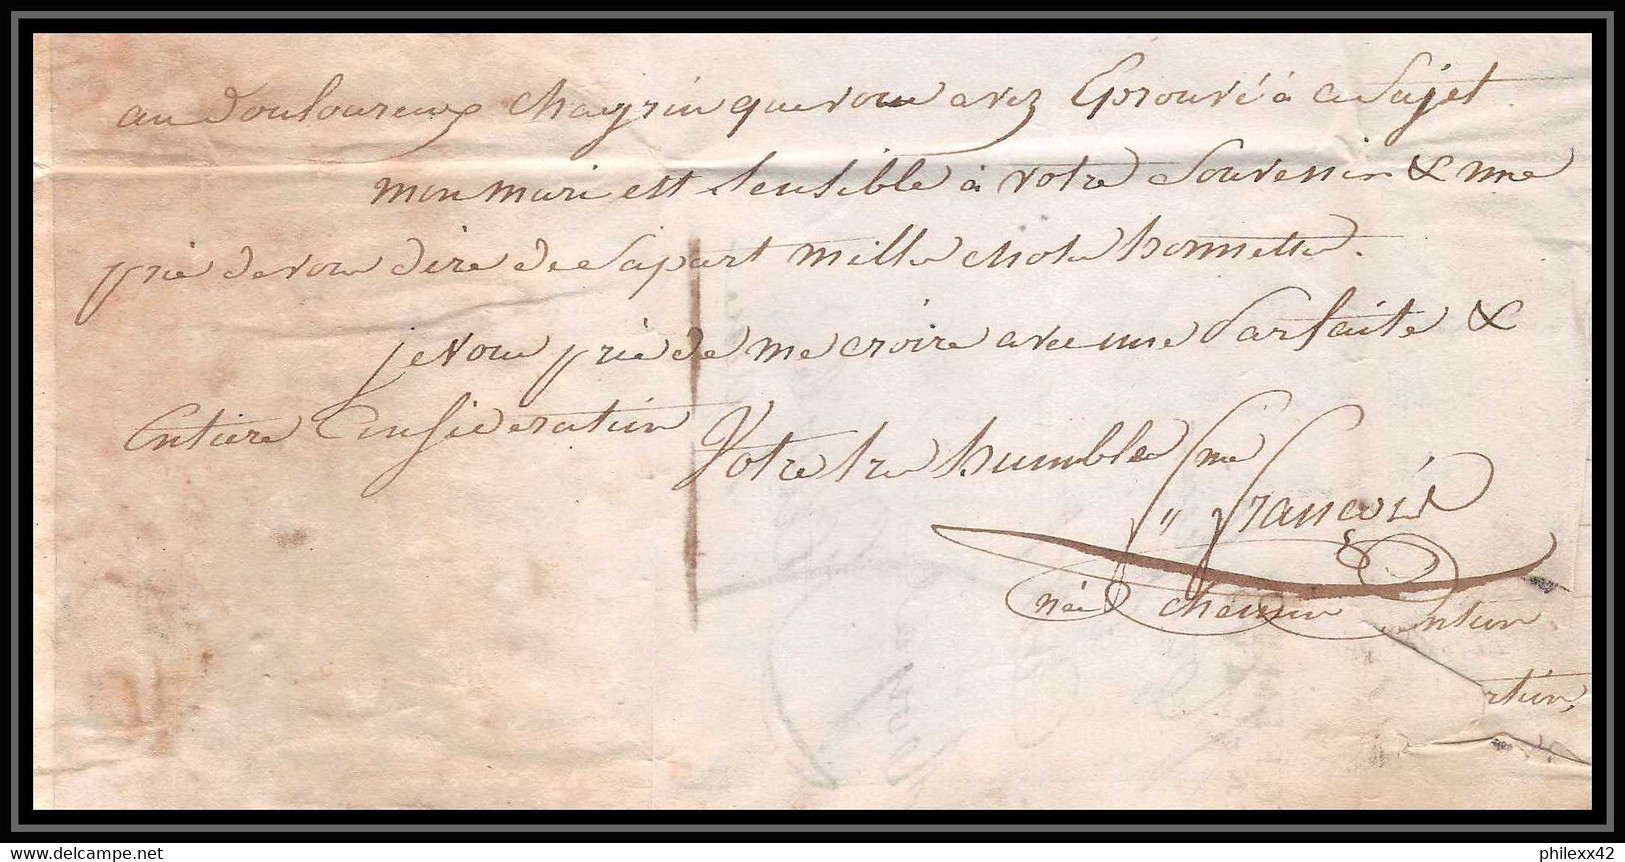 au douloureux chagrin que vous avez Eprouvé à ce sujet.
mon mari est sensible à votre souvenir & me
prie de vous dire de sa part mille choses honnettes.
je vous prie de me croire avec une parfaite &
Entiere Consideration
Votre tres humble
François
née
philexx42